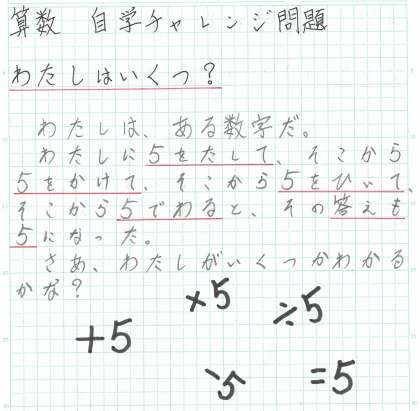 算数 自学チャレンジ問題
わたしはいくつ?
わたしは、ある数字だ。
わたしに5をたして、そこから
5をかけて、そこから5をひいて、
そこから5でわると、その答えも
5になった。
さあ、わたしがいくつかわかる
かな?
×5
÷5
+5
-5
=5